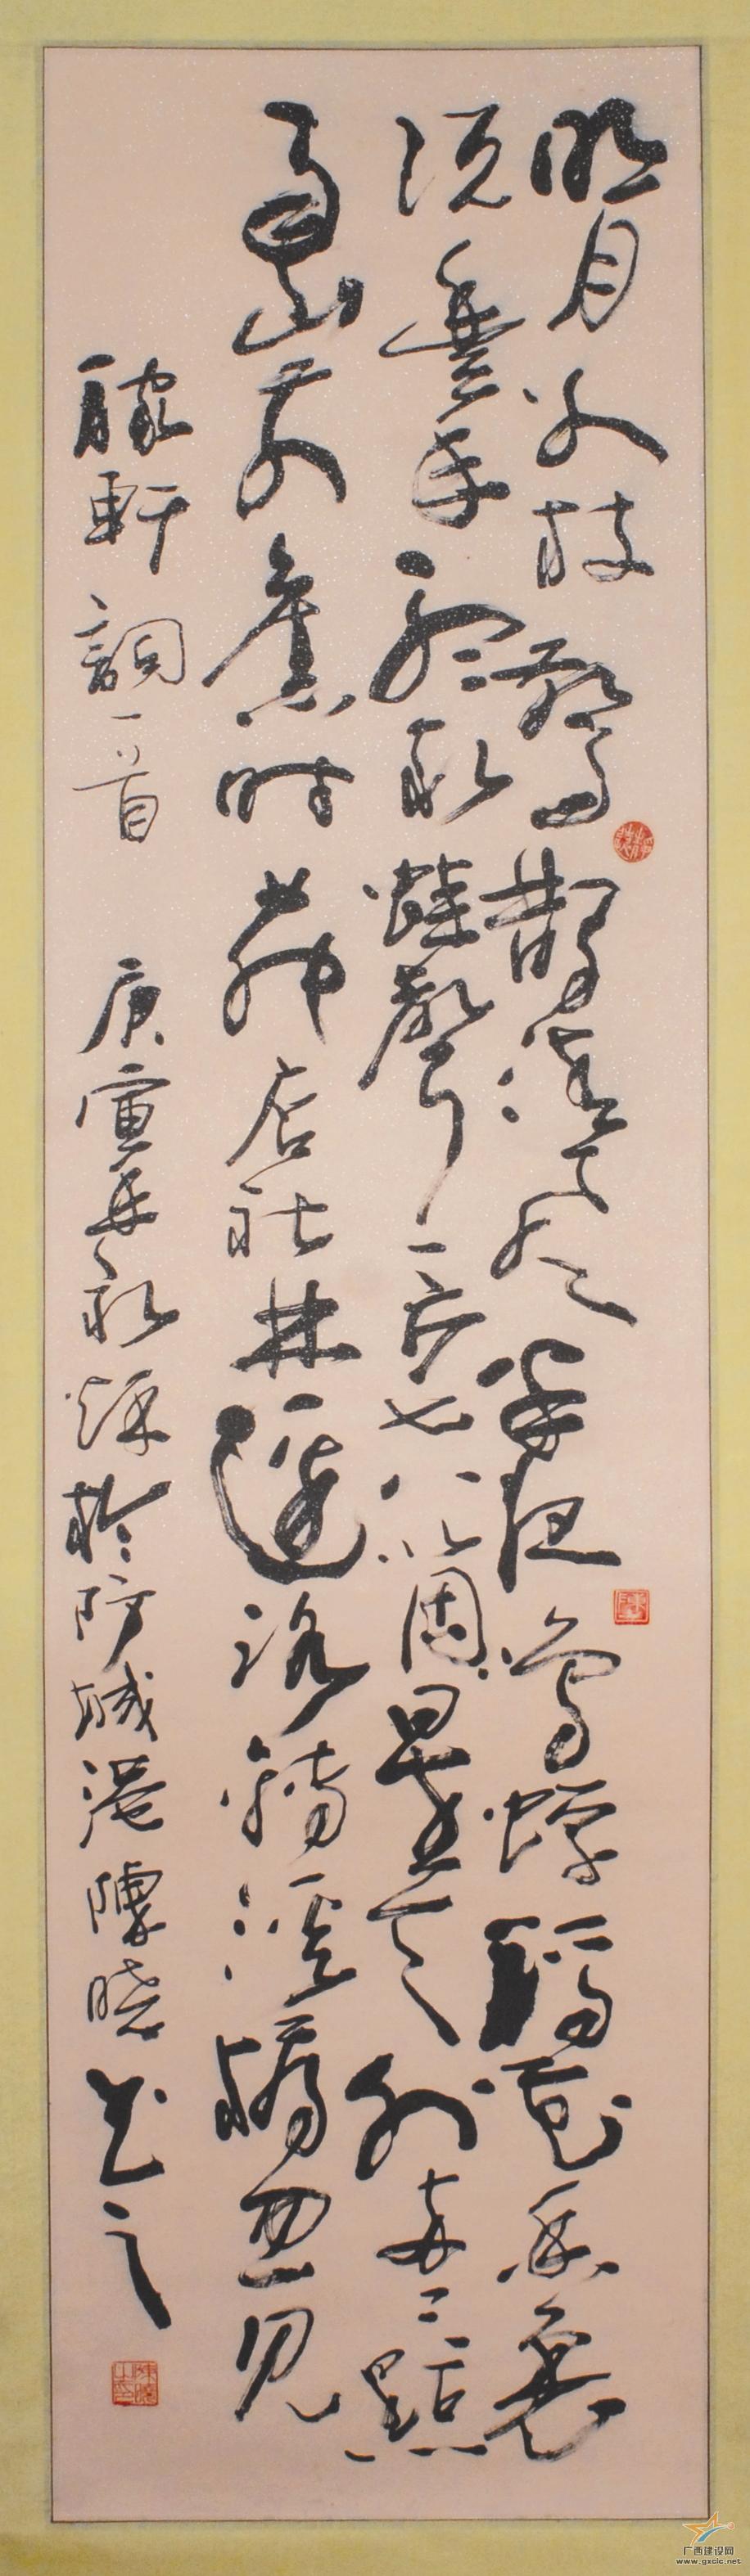 明月别枝驚鵲清風半夜鳴蟬稻花香裏
說豐年聽取蛙聲一片七八個星天外兩三點
雨山前舊時茅店社林邊路轉溪橋忽見
稼軒詞一首 庚寅年初秌於防城港陳曉書之
广西建设网
www.gxcic.net